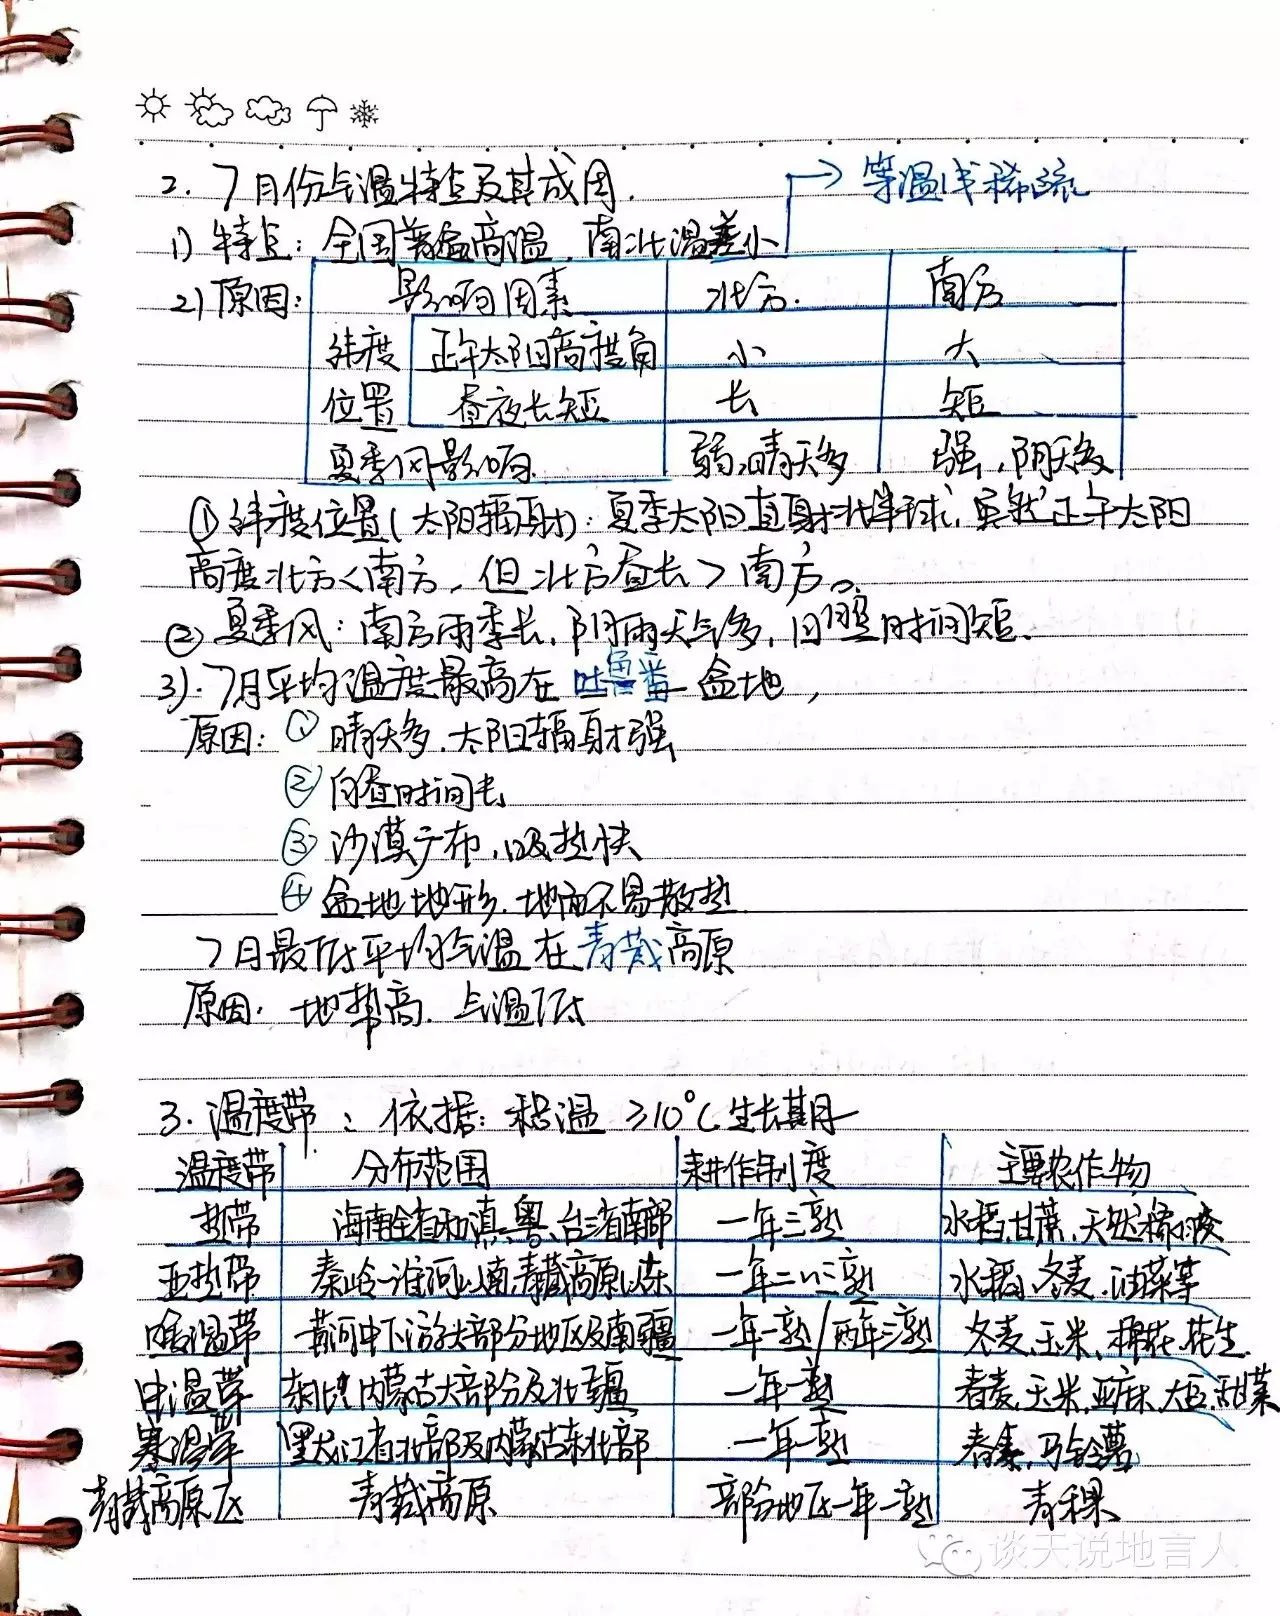 2. 7月份气温特点及其成因. → 等温线稀疏
1) 特点: 全国普遍高温, 南北温差小
2) 原因: 影响因素 北方. 南方
纬度 正午太阳高度角 小 大
位置 昼夜长短 长 短
夏季风影响 弱,晴天多 强,阴天多
① 纬度位置(太阳辐射): 夏季太阳直射北半球, 虽然正午太阳
高度北方<南方, 但北方昼长>南方。
② 夏季风: 南方雨季长, 阴雨天气多, 日照时间短.
3). 7月平均温度最高在 吐鲁番 盆地,
原因: ① 晴天多, 太阳辐射强
② 白昼时间长
③ 沙漠广布, 吸热快
④ 盆地地形, 地面不易散热
7月最低平均气温在青藏高原
原因: 地势高. 气温低
3. 温度带: 依据: 积温 ≥10°C生长期
温度带 分布范围 耕作制度 主要农作物
热带 海南全省和滇、粤、台三省南部 一年三熟 水稻,甘蔗,天然橡胶
亚热带 秦岭-淮河以南,青藏高原以东 一年二~三熟 水稻,冬麦,油菜等
暖温带 黄河中下游大部分地区及南疆 一年一熟/两年三熟 冬麦,玉米,棉花,花生
中温带 东北、内蒙古大部分及北疆 一年一熟 春麦,玉米,亚麻,大豆,甜菜
寒温带 黑龙江省北部及内蒙古东北部 一年一熟 春麦,马铃薯
青藏高原区 青藏高原 部分地区一年一熟 青稞
谈天说地言人